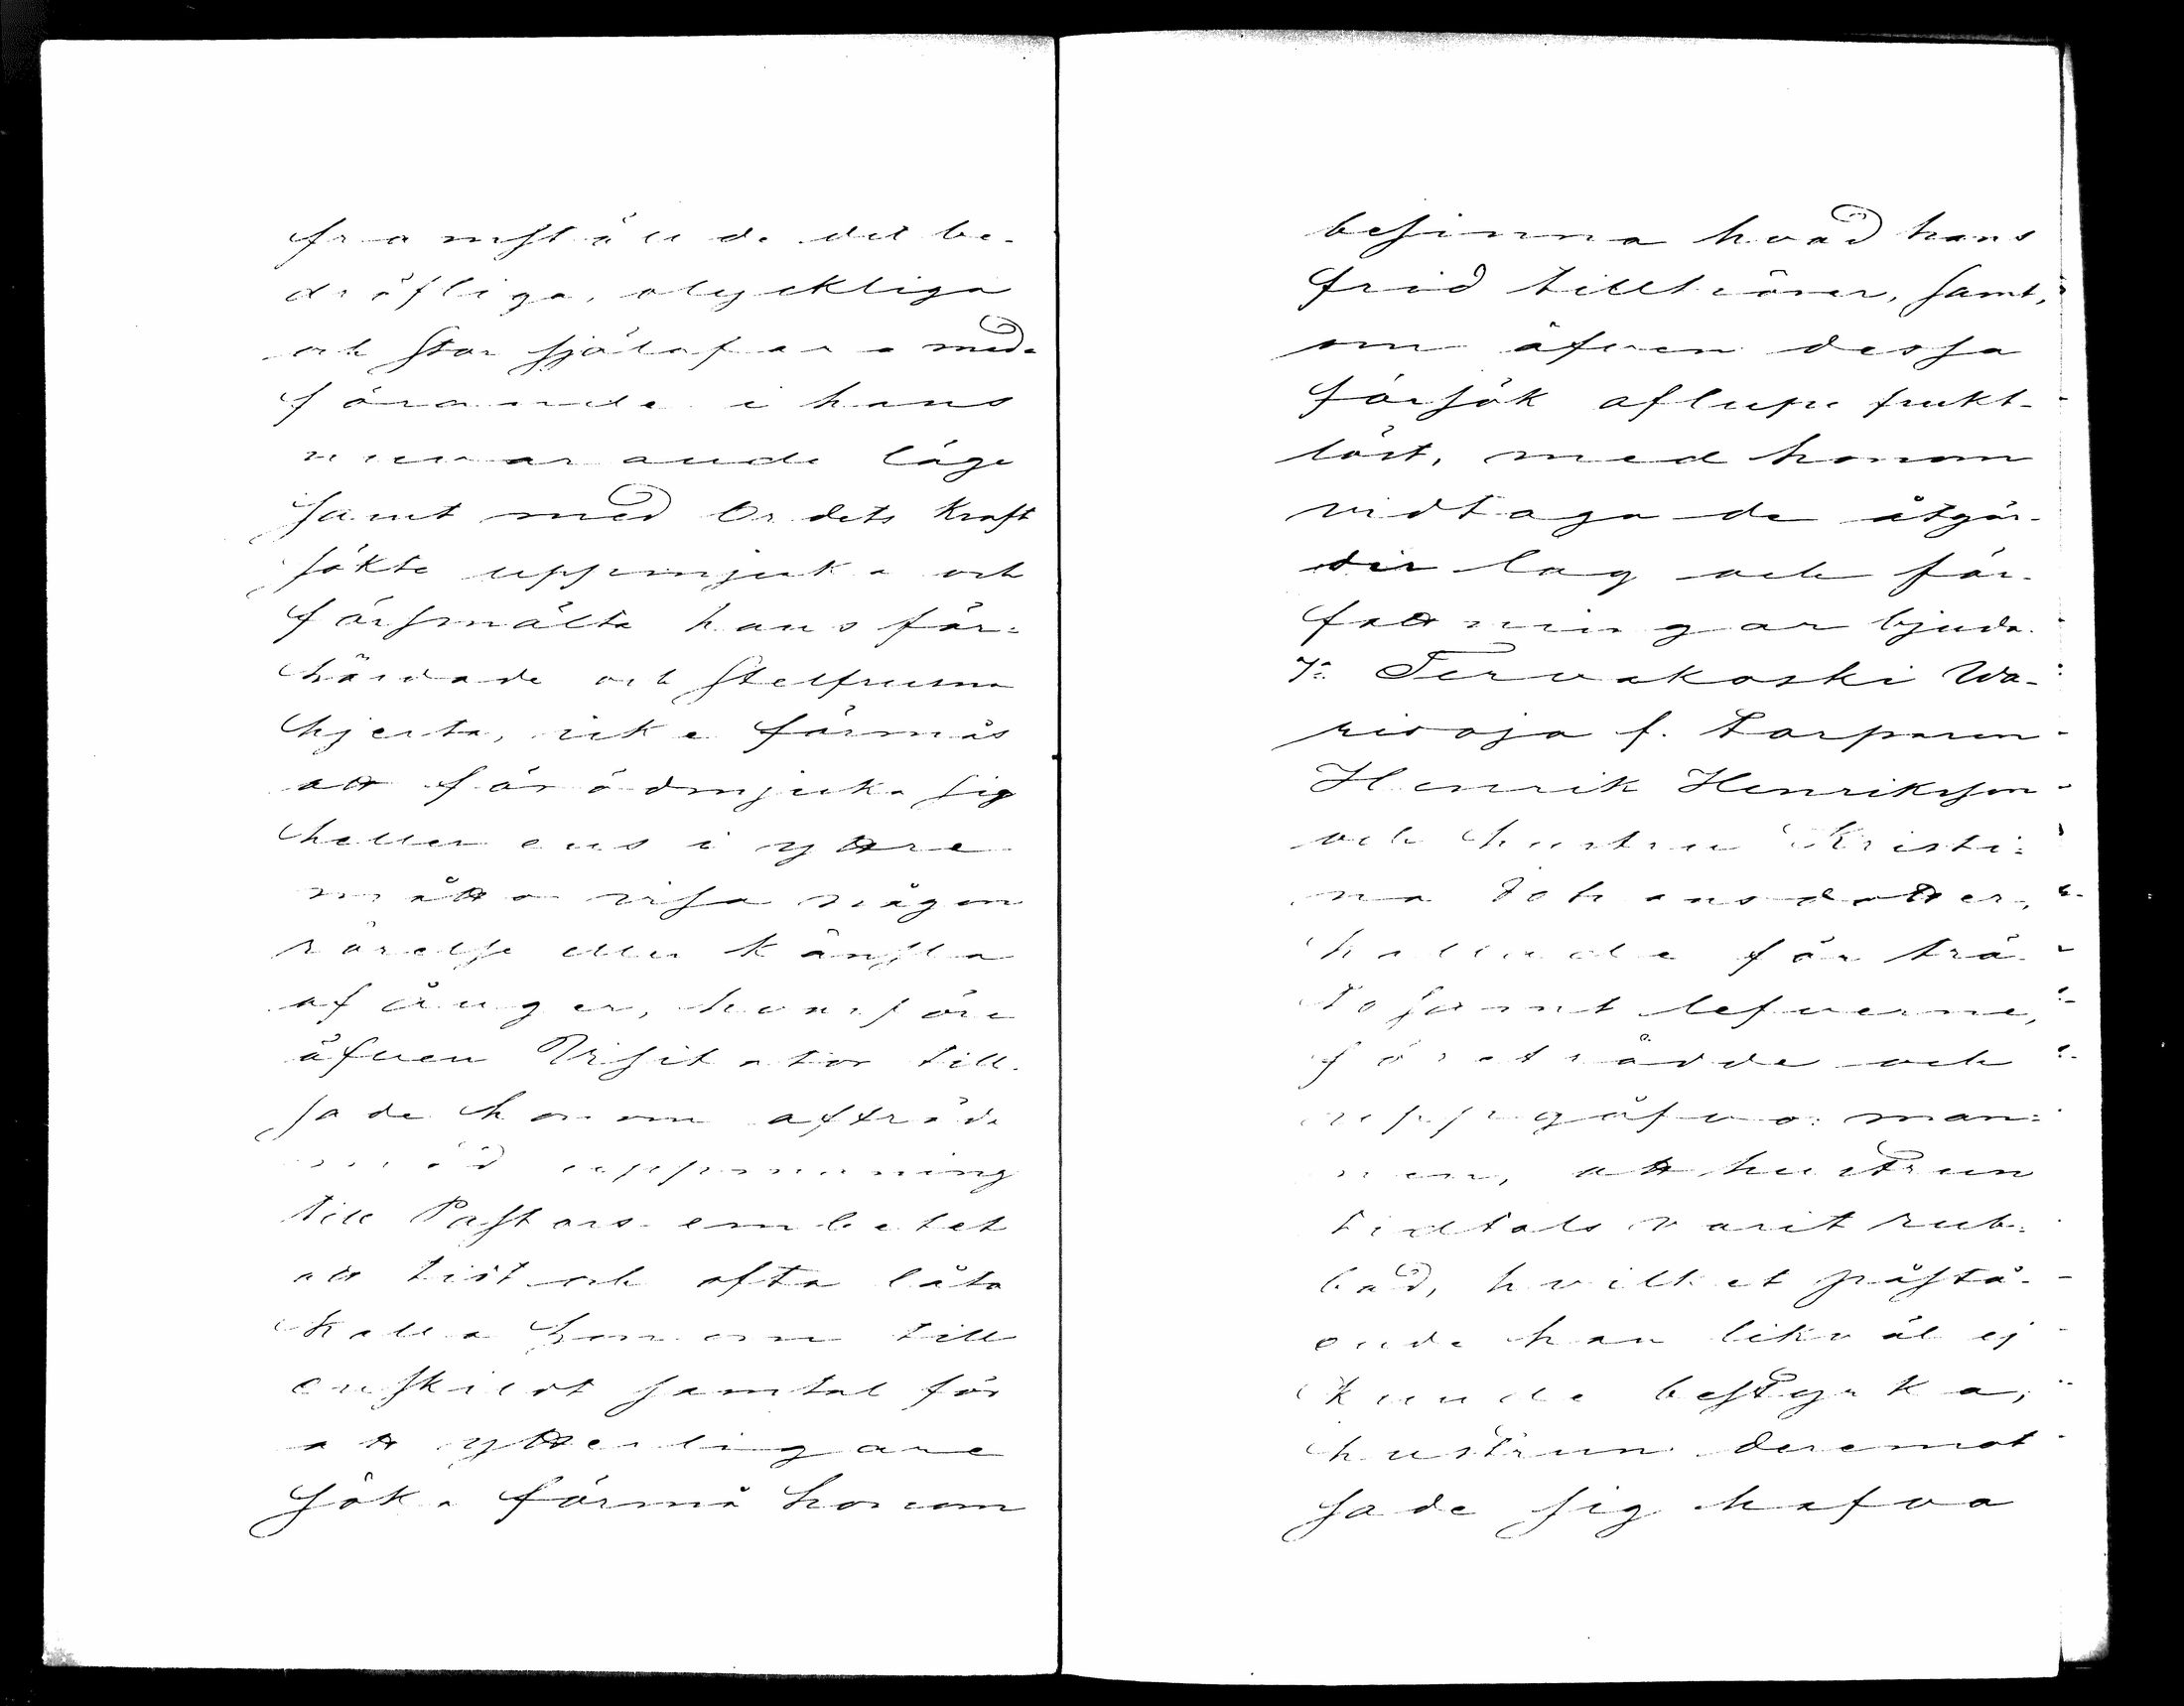 framstälde det be-
dröfliga, olyckliga
och stor själafara med-
förande i hans
nuvarande läge
samt med Ordets kraft
sökte uppmjuka och
försmälta hans för-
härdade och stelfrusna
hjerta, icke förmås
att förödmjuka sig
heller ens i yttre
måtto visa någon
rörelse eller känsla
af ånger, hvarföre
äfven Visitator till-
sade honom afträda
med uppmaning
till Pastors embetet
att tidt och ofta låta
kalla honom till
enskildt samtal för
att ytterligare
söka förmå honom
besinna hvad hans
frid tillhörer, samt,
om äfven dessa
försök aflupe frukt-
löst, med honom
vidtaga de åtgär-
der lag och för-
fattningar bjuda.
7:o Tervakoski Wa-
risoja f. torparen
Henrik Henriksson
och hustru Kristi-
na Johansdotter,
kallade för trä-
tosamt lefverne,
företrädde och
uppgåfvo: man-
nen, att hustrun
tidtals varit rub-
bad, hvilket påstå-
ende han likväl ej
kunde bestyrka;
hustrun deremot
sade sig hafva